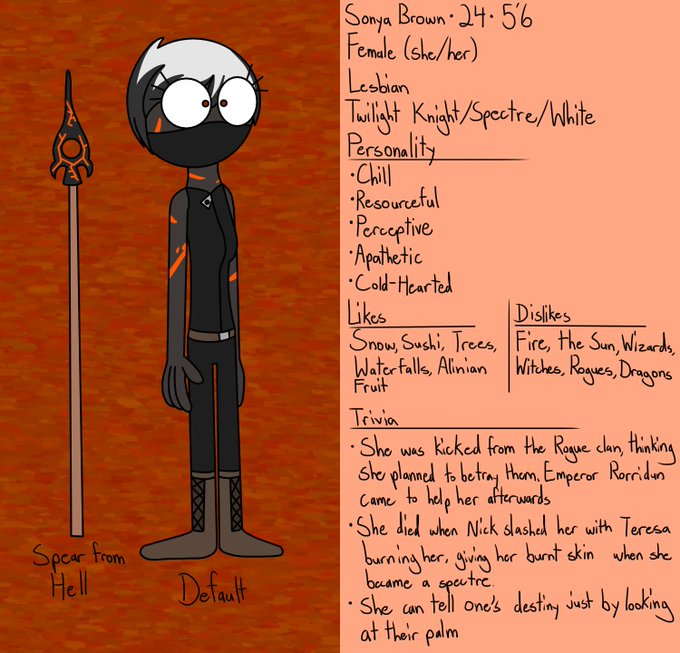 Sonya Brown • 24 • 5'6
Female (she/her)
Lesbian
Twilight Knight/Spectre/White
Personality
• Chill
• Resourceful
• Perceptive
• Apathetic
• Cold-Hearted
Likes
Snow, Sushi, Trees,
Waterfalls, Alinian
Fruit
Dislikes
Fire, the Sun, Wizards,
Witches, Rogues, Dragons
Trivia
• She was kicked from the Rogue clan, thinking
she planned to betray them. Emperor Rorridun
came to help her afterwards
• She died when Nick slashed her with Teresa
burning her, giving her burnt skin when she
became a spectre.
• She can tell one's destiny just by looking
at their palm
Spear from
Hell
Default